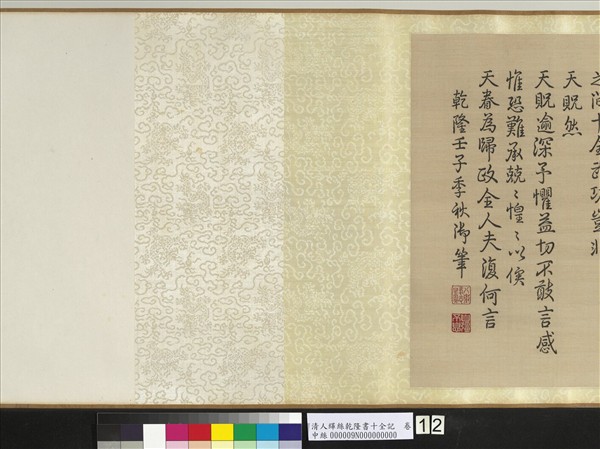 之間十全武功豈非
天貺然
天貺逾深予懼益切不敢言感
惟恐難承兢〻惶〻以俟
天眷為歸政全人夫復何言
乾隆壬子季秋御筆
清人緙絲乾隆書十全記 卷
中絲 000009N000000000
12